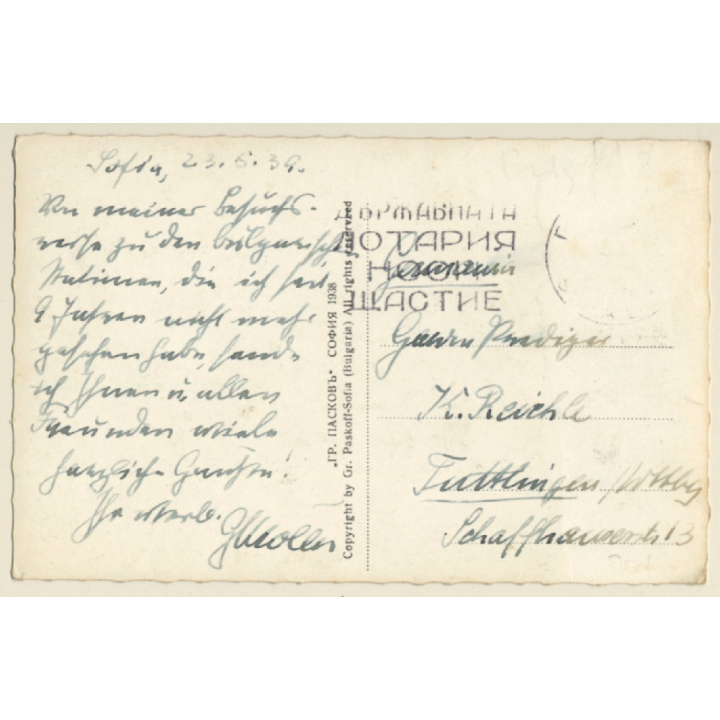 Sofia, 23.5.39.
Von meiner Besuchs-
reise zu den bulgarischen
Stationen, die ich seit
9 Jahren nicht mehr
gesehen habe, sende
ich Ihnen u. allen
Freunden viele
herzliche Grüsse!
Ihr
„ГР. ПАСКОВЪ" СОФИЯ 1938
Copyright by Gr. Paskoff-Sofia (Bulgaria) All rights reserved
ДЪРЖАВНАТА
ЛОТАРИЯ
НОСИ
ЩАСТИЕ
Germania
Prediger
K. Reichle
Tuttlingen / Wttbg
Schaffhauserstr. 13